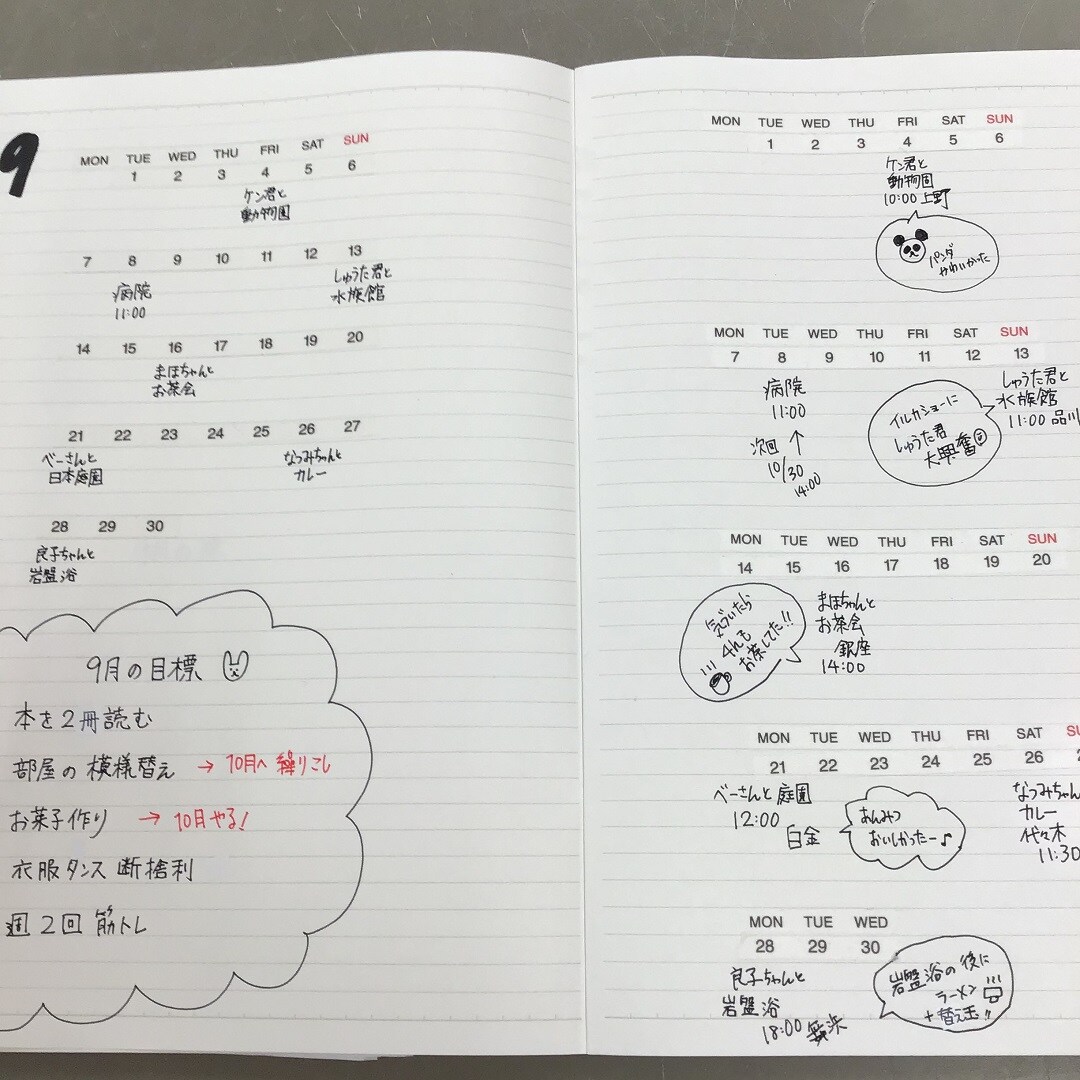 9
MON TUE WED THU FRI SAT SUN
1 2 3 4 5 6
ケン君と
動物園
7 8 9 10 11 12 13
病院
11:00
しゅうた君と
水族館
14 15 16 17 18 19 20
まほちゃんと
お茶会
21 22 23 24 25 26 27
べーさんと
日本庭園
なつみちゃんと
カレー
28 29 30
良子ちゃんと
岩盤浴
9月の目標
本を2冊読む
部屋の模様替え → 10月へ繰りこし
お菓子作り → 10月やる!
衣服タンス断捨利
週2回筋トレ
MON TUE WED THU FRI SAT SUN
1 2 3 4 5 6
ケン君と
動物園
10:00 上野
パンダ
かわいかった
MON TUE WED THU FRI SAT SUN
7 8 9 10 11 12 13
病院
11:00
次回 ↑
10/30
14:00
イルカショーに
しゅうた君
大興奮
しゅうた君と
水族館
11:00 品川
MON TUE WED THU FRI SAT SUN
14 15 16 17 18 19 20
気づいたら
4hも
お茶してた!!
まほちゃんと
お茶会
銀座
14:00
MON TUE WED THU FRI SAT
21 22 23 24 25 26
べーさんと庭園
12:00
白金
あんみつ
おいしかったー♪
なつみちゃん
カレー
代々木
11:30
MON TUE WED
28 29 30
良子ちゃんと
岩盤浴
18:00
岩盤浴の後に
ラーメン
+替え玉!!